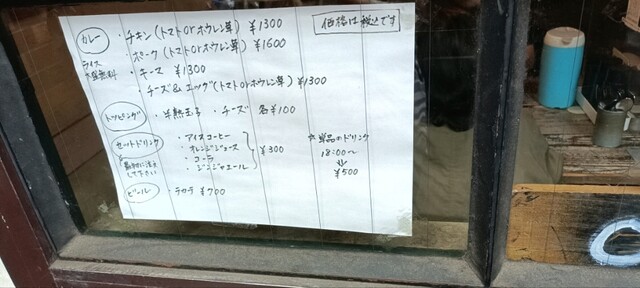 カレー
・チキン（トマトorホウレン草）¥1300
価格は税込です
・ポーク（トマトorホウレン草）¥1600
ライス
大盛無料
・キーマ ¥1300
・チーズ&エッグ（トマトorホウレン草）¥1300
トッピング
・半熟玉子 ・チーズ 各¥100
セットドリンク
・アイスコーヒー
・オレンジジュース
・コーラ
・ジンジャエール
¥300
最初に注文
して下さい
☆単品のドリンク
18:00〜
⇓
¥500
ビール
・テカテ ¥700